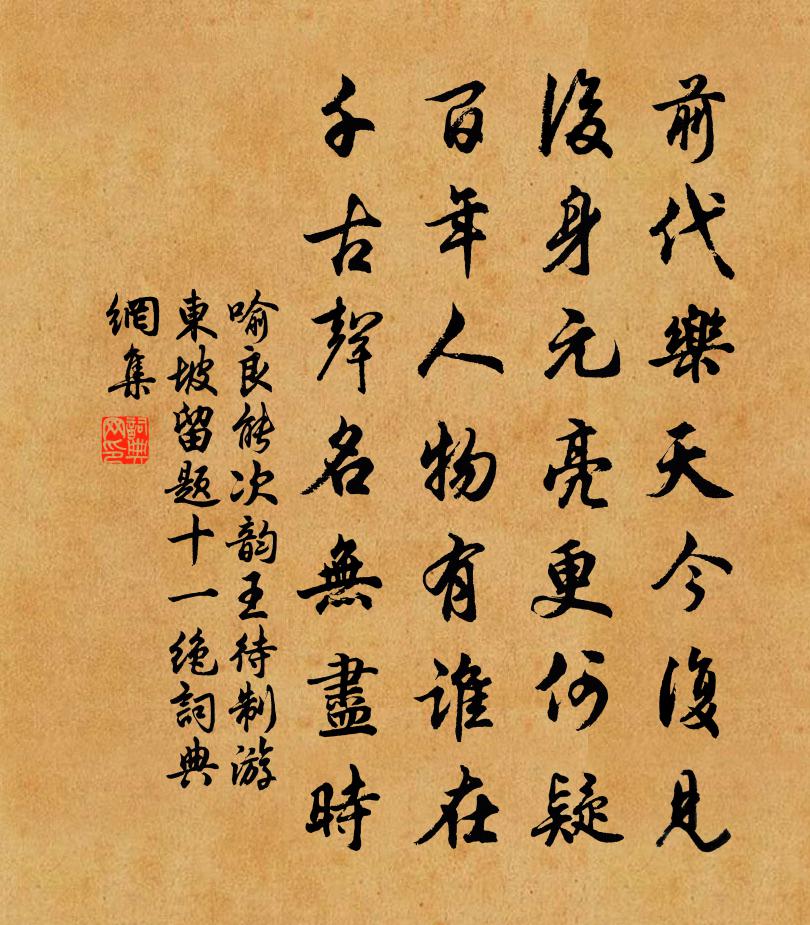 前代樂天今復見
後身元亮更何疑
百年人物有誰在
千古聲名無盡時
喻良能次韵王待制游
東坡留题十一絶詞典
網集
詞典
网印